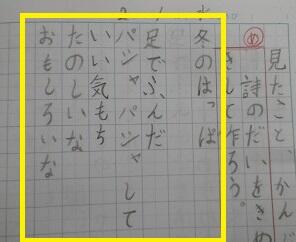 見たこと、かんじ
め
詩のだいをきめ
きして作ろう。
冬のはっぱ
足でふんだ
パシャパシャして
いい気もち
たのしいな
おもしろいな